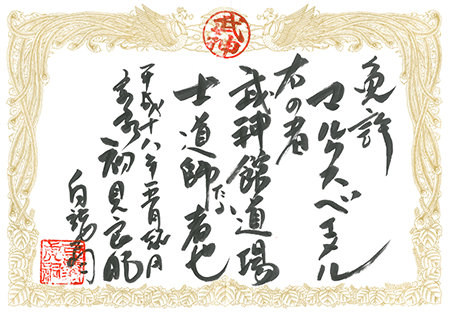 武神
免許
マルクスベェタル
右の者
武神館道場
士道師たる者也
平成十八年三月吉日
宗家 初見良昭
白龍翁